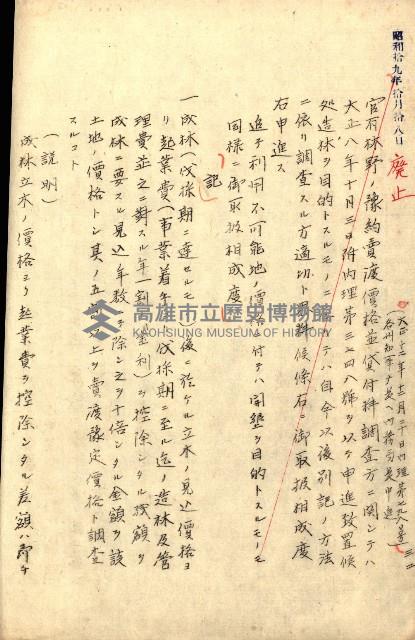 昭和拾九年拾月拾八日
廃止
(大正十二年十二月二十日内理第七九八号)
各州知事、庁長ヘ内務局長申進
官有林野ノ豫約賣渡價格並貸付料調査方ニ関シテハ
大正八年十月三日附内理第三二四八号ヲ以テ申進置候
処造林ヲ目的トスルモノニ付テハ自今以後別記ノ方法
ニ依リ調査スル方適切ト思料候條右ニ御取扱相成度
右申進ス
追テ利用不可能地ノ價格ニ付テハ開墾ヲ目的トスルモノモ
同様ニ御取扱相成度
記
一成林(伐採期ニ達セルモノ)後ニ於ケル立木ノ見込價格ヨ
リ起業費(事業着手ヨリ伐採期ニ至ル迄ノ造林及管
理費並之ニ對スル年一割ノ重利)ヲ控除シタル残額ヲ
成林ニ要スル見込年数ヲ除シ之ヲ十倍シタル金額ヲ該
土地ノ價格トシ其ノ五
以上ヲ賣渡豫定價格ト調査
スルコト
(説明)
成林立木ノ價格ヨリ起業費ヲ控除シタル差額ハ即チ
高雄市立歷史博物館
KAOHSIUNG MUSEUM OF HISTORY